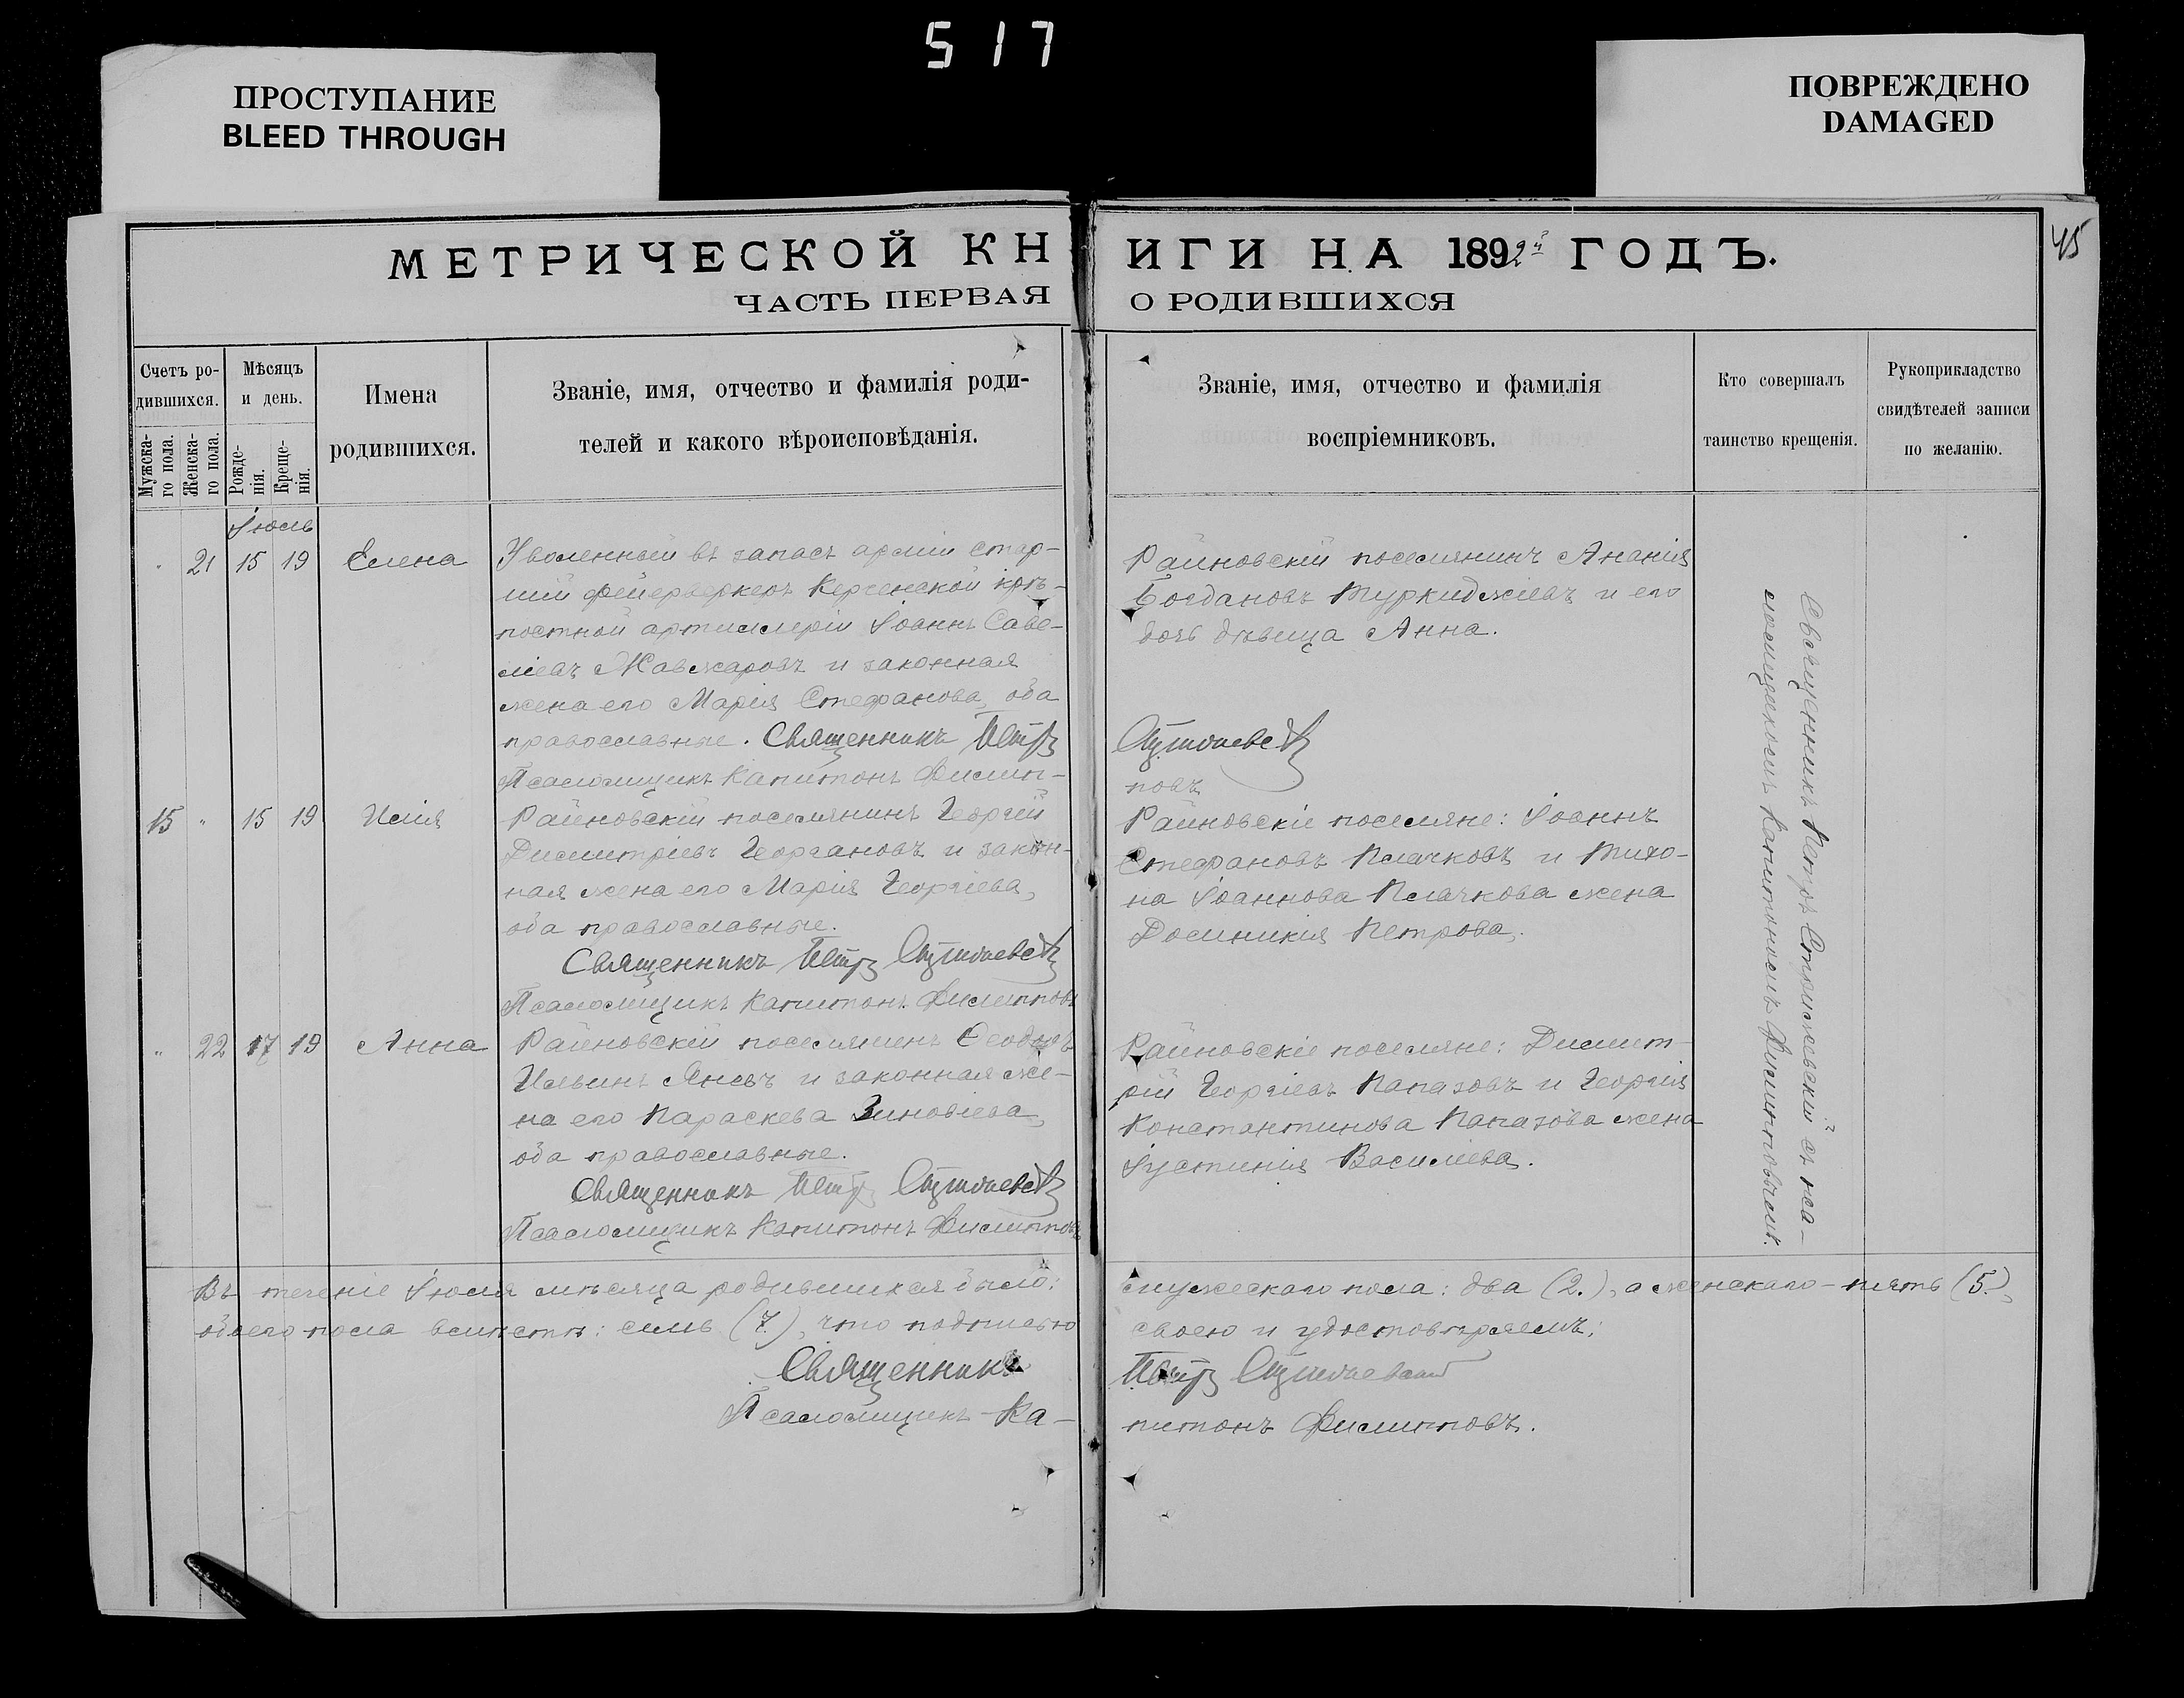 517
ПРОСТУПАНИЕ
BLEED THROUGH
ПОВРЕЖДЕНО
DAMAGED
45
МЕТРИЧЕСКОЙ КН
ИГИ НА 1892й ГОДЪ.
ЧАСТЬ ПЕРВАЯ
О РОДИВШИХСЯ
Счетъ ро-
дившихся.
Мужска-
го пола.
Женска-
го пола.
Мѣсяцъ
и день.
Рожде-
нія.
Креще-
нія.
Имена
родившихся.
Званіе, имя, отчество и фамилія роди-
телей и какого вѣроисповѣданія.
Званіе, имя, отчество и фамилія
воспріемниковъ.
Кто совершалъ
таинство крещенія.
Рукоприкладство
свидѣтелей записи
по желанію.
Іюль
" 21 15 19 Елена
Уволенный въ запасъ арміи стар-
шій фейерверкеръ Керченской крѣ-
постной артиллеріи Іоаннъ Саве-
ліевъ Жавжаровъ и законная
жена его Марія Стефанова, оба
православные. Священникъ Петръ
Псаломщикъ Капитонъ Филип-
Райновскій поселянинъ Ананія
Богдановъ Туркиджіевъ и его
дочь дѣвица Анна.
повъ
15 " 15 19 Илія
Райновскій поселянинъ Георгій
Димитріевъ Георгановъ и закон-
ная жена его Марія Георгіева,
оба православные.
Священникъ Петръ
Псаломщикъ Капитонъ Филипповъ
Райновскіе поселяне: Іоаннъ
Стефановъ Плачковъ и Ѳихо-
на Іоаннова Плачкова жена
Домникія Петрова.
" 22 17 19 Анна
Райновскій поселянинъ Ѳеодоръ
Ильинъ Яневъ и законная же-
на его Параскева Зиновіева,
оба православные.
Священникъ Петръ
Псаломщикъ Капитонъ Филипповъ
Райновскіе поселяне: Димит-
рій Георгіевъ Папазовъ и Георгія
Константинова Папазова жена
Іустинія Василіева.
Священникъ Петръ съ пса-
ломщикомъ Капитономъ Филипповымъ.
Въ теченіе Іюля мѣсяца родившихся было:
мужескаго пола: два (2.), а женскаго - пять (5.),
обоего пола вмѣстѣ: семь (7.), что подписью
своею и удостовѣряемъ:
Священникъ
Петръ
Псаломщикъ Ка-
питонъ Филипповъ.